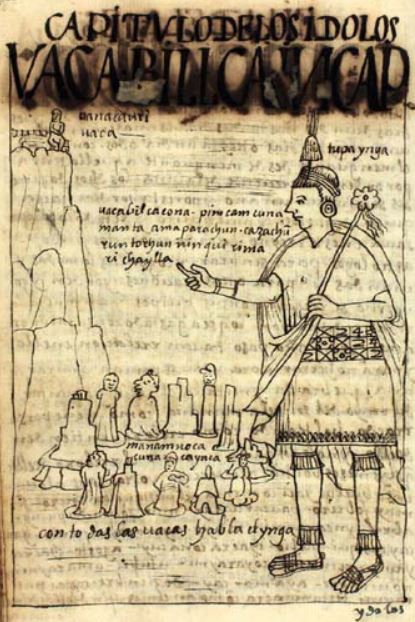 CAPITVLO DE LOS IDOLOS
VACA BILLCA INCAP
uanacauri
uaca
tupa ynga
uaca bilcacona · pim camcuna
manta ama parachun · cazachu
runtochun ninqui rima
ri chaylla
manam noca
cuna caynca
con todas las uacas habla el ynga
ydolos